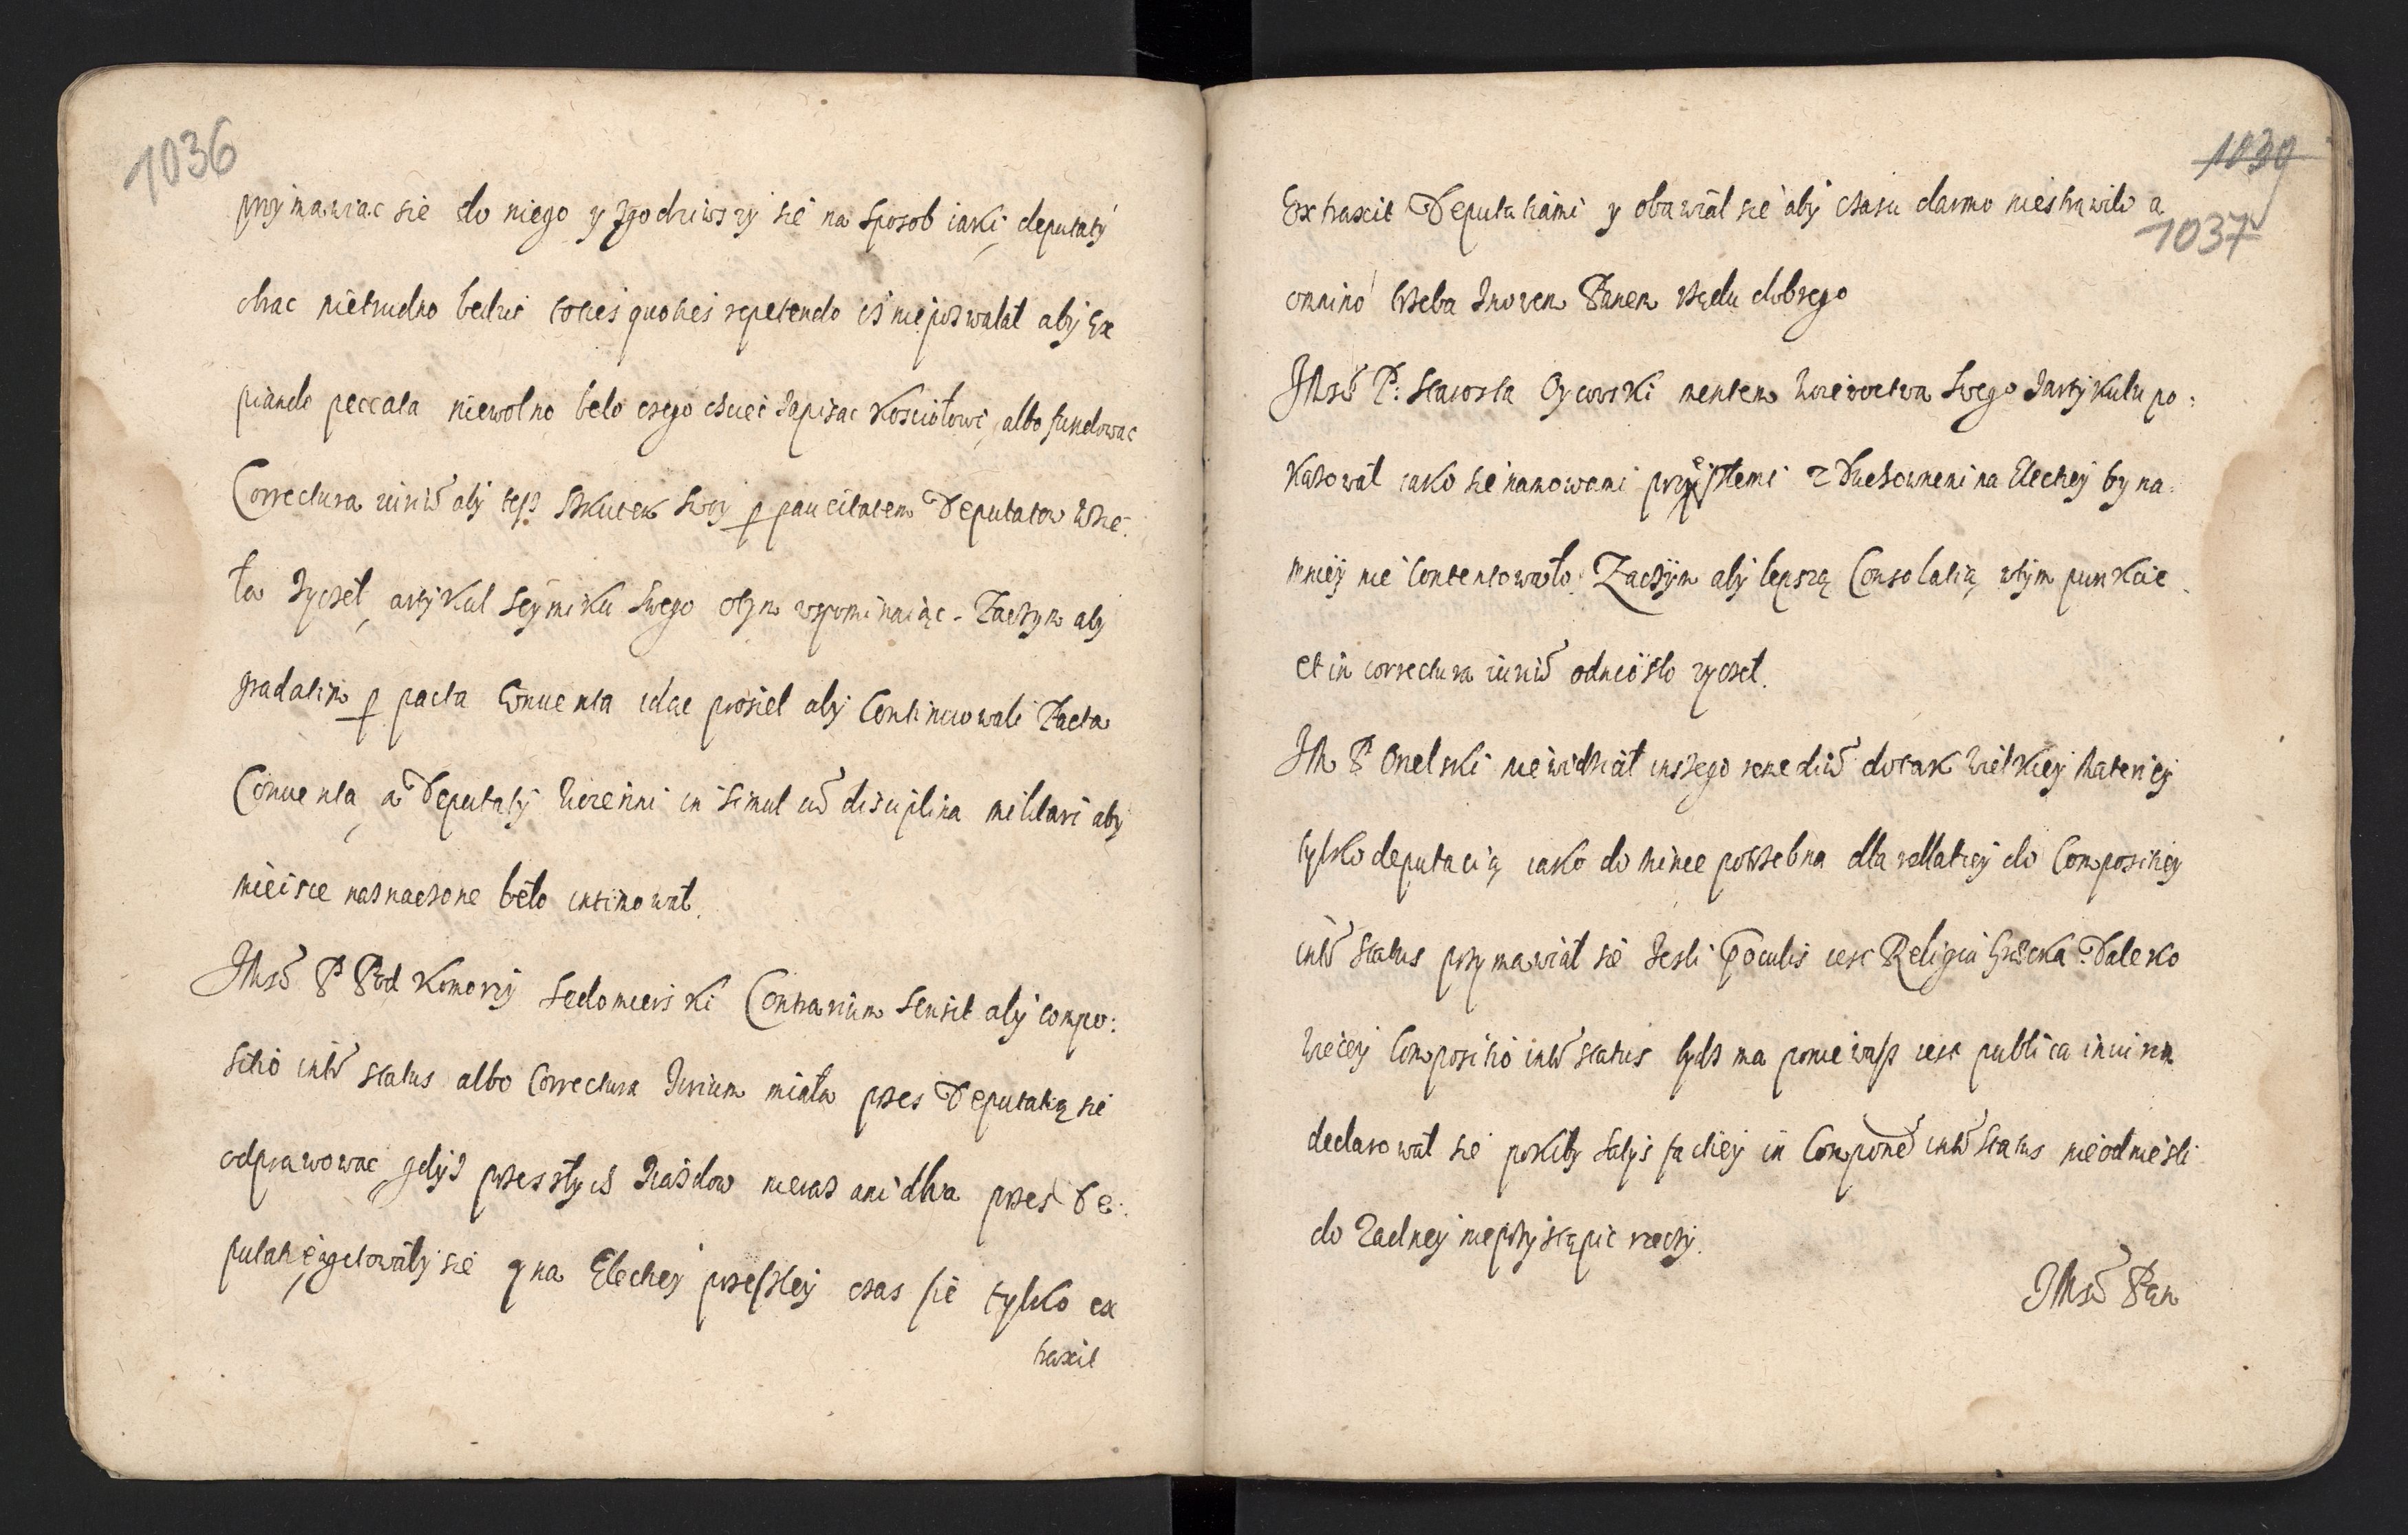 1036
przymawiac sie do niego y zgodziwszy sie na sposob iaki, deputaty
obrac nietrudno bedzie toties quoties repetendo is niepozwalał aby Ex
piando peccata niewolno beło czego Kosciołowi, albo fundowac
Correctura iuriu aby tesz skutek swoy p paucitatem Deputatow wzie
ła zyczeł, artykul seymiku swego otym wspominaiąc. Zaczym aby
gradatim p pacta Conuenta idac prosieł aby Continuowali Pacta
Conuenta, a Deputaty insimul cu disciplina militari aby
mieisce naznaczone beło intimowat.
JMsc P Podkomorzy Sedomierski Contrarium sensit aby compo:
sitio inter status albo Correctura Jurium miała przes Deputatią sie
odprawowac gdysz przeszłych Ziazdow nieras ani dwa przes De:
putatie agitowały sie y na Electiey przeszłey czas sie tylko ex
traxit
1039
1037
Extraxit Deputatiami y obawiał sie aby czasu darmo niestrawiło a
omnino trzeba Panem rządu dobrego
JMsc P: Starosta Oycowski mentem woiewoctwa swego Jartykulu po:
kazował iako sie namowami przeszłemi z Duchownemi na Electiey byna
mniey nie Contentowało. Zaczym aby lepszą Consolatią wtym punkcie
et in correctura iuriu odniosło zyczeł.
JM P Orzelski niewidział inszego remediu dotak wielkiey materiey
tylko deputacią iako do mince potrzebna dla rellatiey do Compositiey
inter status przymawiał sie Jesli p oculis iest Religia Grecka Daleko
wiecey Compositio inter status bydz ma poniewasz iest publica iniuria
declarowat sie pokiby satysfactiey in Componen inter status nieodniesli
do zadney nieprzystąpic rzeczy.
JMsc Pan